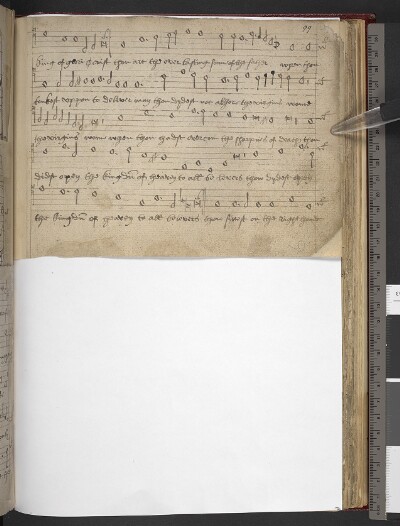 99
king of glorie Christ thou art the ever lasting sonn of the father when thou
tokest uppon to deliver man thou dydest not abhor the virgins wombe
the virgins wombe when thou hadest overcom the sharpnes of death thou
didest open the kingdom of heaven to all be levers thou dydest open
the kingdom of heaven to all belevers thou sitest on the right hand